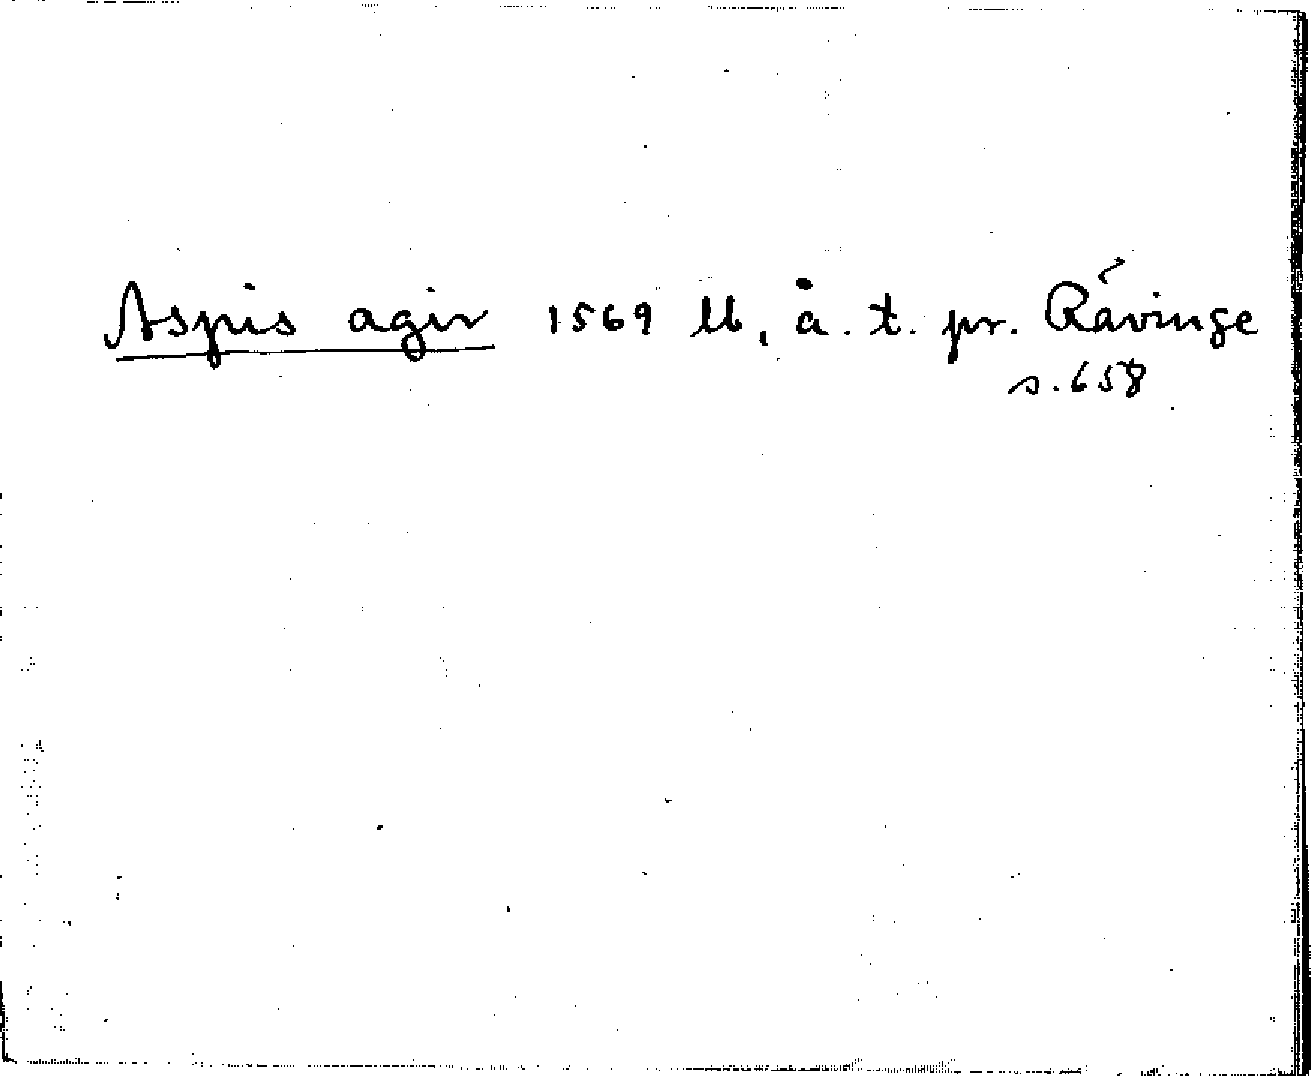 Aspis agir 1569 Ll, å. t. pr. Rávinge
s. 658